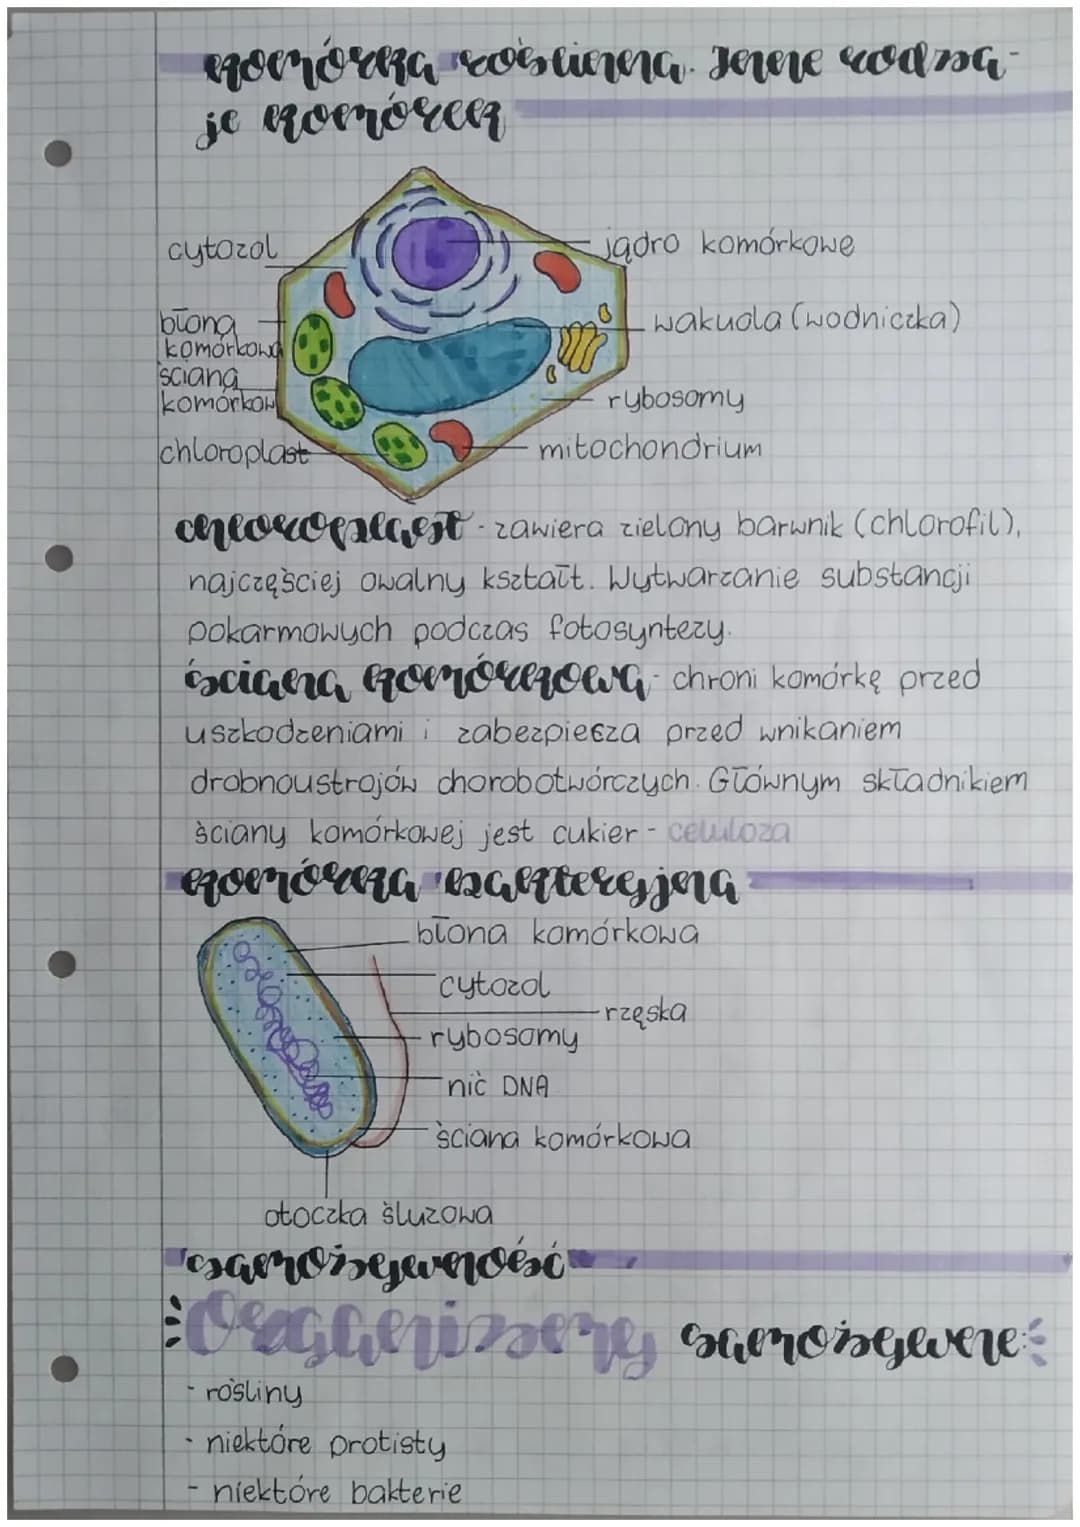 komórka roślinna. Inne rodza-
je komórek
cytozol
jądro komórkowe
błona
komórkowa
wakuola (wodniczka)
ściana
komórkow
rybosomy
chloroplast
mitochondrium
chloroplast - zawiera zielony barwnik (chlorofil),
najczęściej owalny kształt. Wytwarzanie substancji
pokarmowych podczas fotosyntezy.
ściana komórkowa - chroni komórkę przed
uszkodzeniami i zabezpiecza przed wnikaniem
drobnoustrojów chorobotwórczych. Głównym składnikiem
ściany komórkowej jest cukier - celuloza
komórka bakteryjna
błona komórkowa
cytozol
rzęska
rybosomy
nić DNA
ściana komórkowa
otoczka śluzowa
samożywność
Organizmy samożywne:
- rośliny
- niektóre protisty
- niektóre bakterie